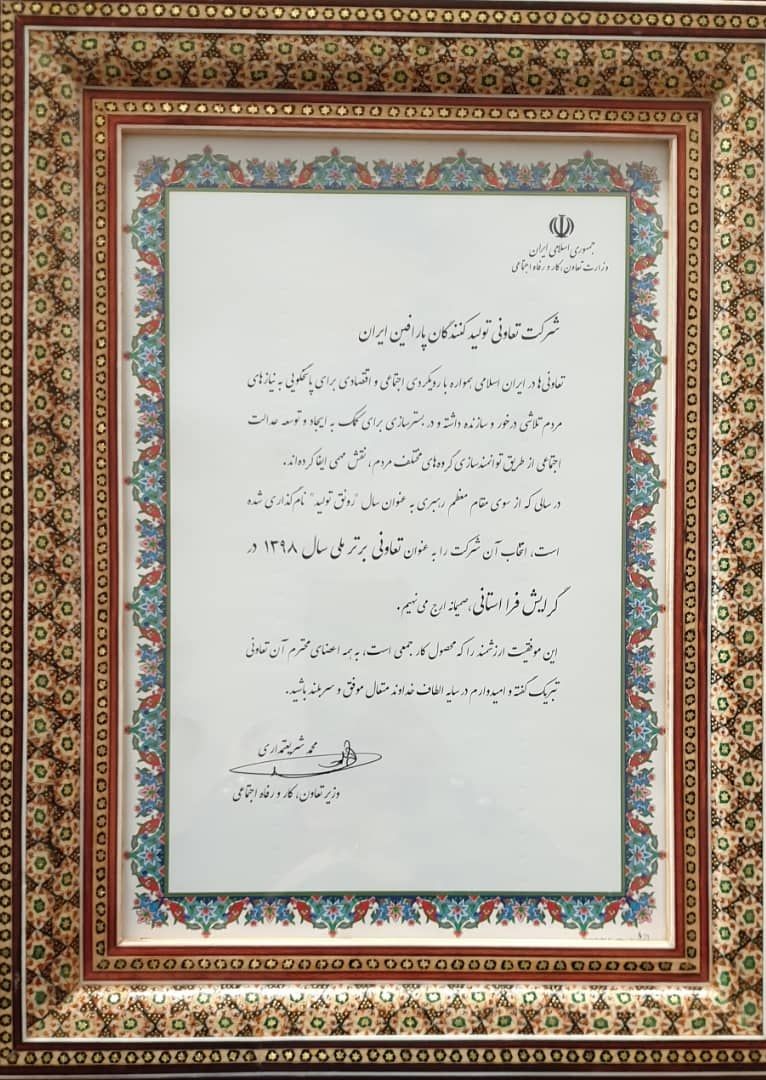 جمهوری اسلامی ایران
وزارت تعاون، کار و رفاه اجتماعی
شرکت تعاونی تولید کنندگان پارافین ایران
تعاونی‌ها در ایران اسلامی همواره با رویکردی اجتماعی و اقتصادی برای پاسخگویی به نیازهای
مردم تلاشی درخور و سازنده داشته و در بسترسازی برای کمک به ایجاد و توسعه عدالت
اجتماعی از طریق توانمندسازی گروه‌های مختلف مردم، نقش مهمی ایفا کرده‌اند.
در سالی که از سوی مقام معظم رهبری به عنوان سال "رونق تولید" نام گذاری شده
است، انتخاب آن شرکت را به عنوان تعاونی برتر ملی سال ۱۳۹۸ در
گرایش فرا استانی، صمیمانه ارج می نهیم.
این موفقیت ارزشمند را که محصول کار جمعی است، به همه اعضای محترم آن تعاونی
تبریک گفته و امیدوارم در سایه الطاف خداوند متعال موفق و سربلند باشید.
محمد شریعتمداری
وزیر تعاون، کار و رفاه اجتماعی